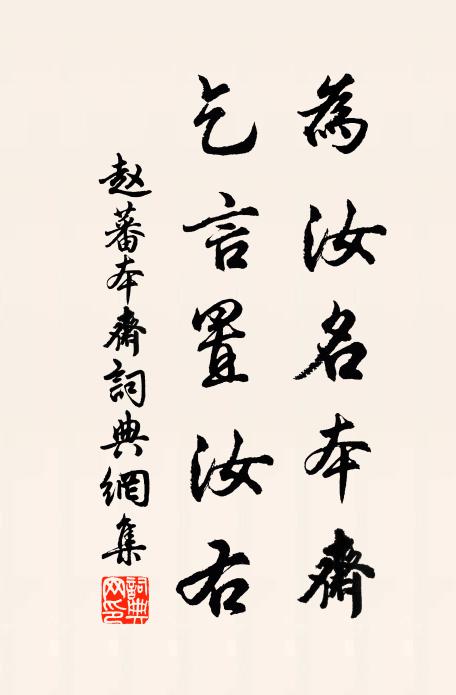 為汝名本齋
乞言置汝右
赵蕃本齋詞典網集
詞典网印